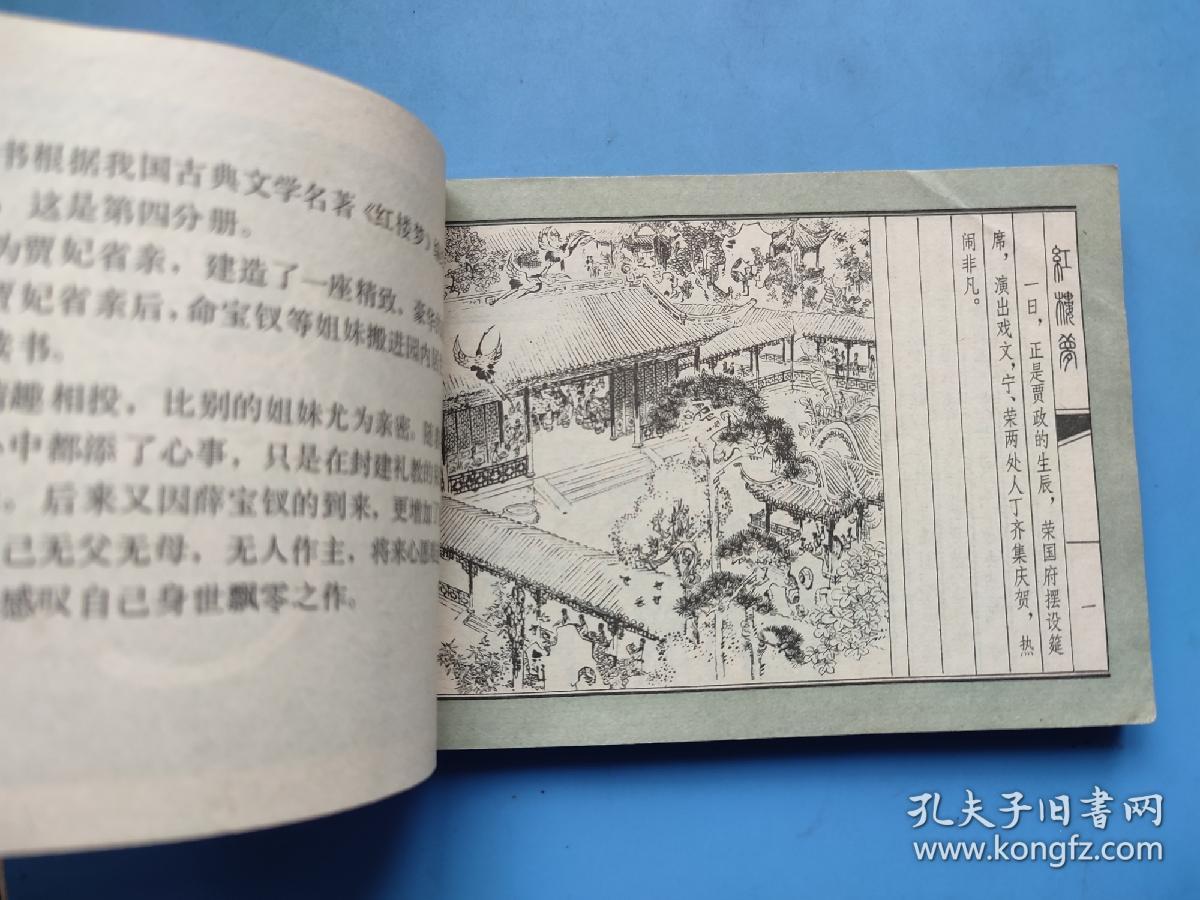 书根据我国古典文学名著《红楼梦》
，这是第四分册。
为贾妃省亲，建造了一座精致、豪华
贾妃省亲后，命宝钗等姐妹搬进园内
读书。
情趣相投，比别的姐妹尤为亲密。随
心中都添了心事，只是在封建礼教的
。后来又因薛宝钗的到来，更增加了
己无父无母，无人作主，将来心愿
感叹自己身世飘零之作。
紅樓夢
一
一日，正是贾政的生辰，荣国府摆设筵
席，演出戏文，宁、荣两处人丁齐集庆贺，热
闹非凡。
孔夫子旧书网
www.kongfz.com